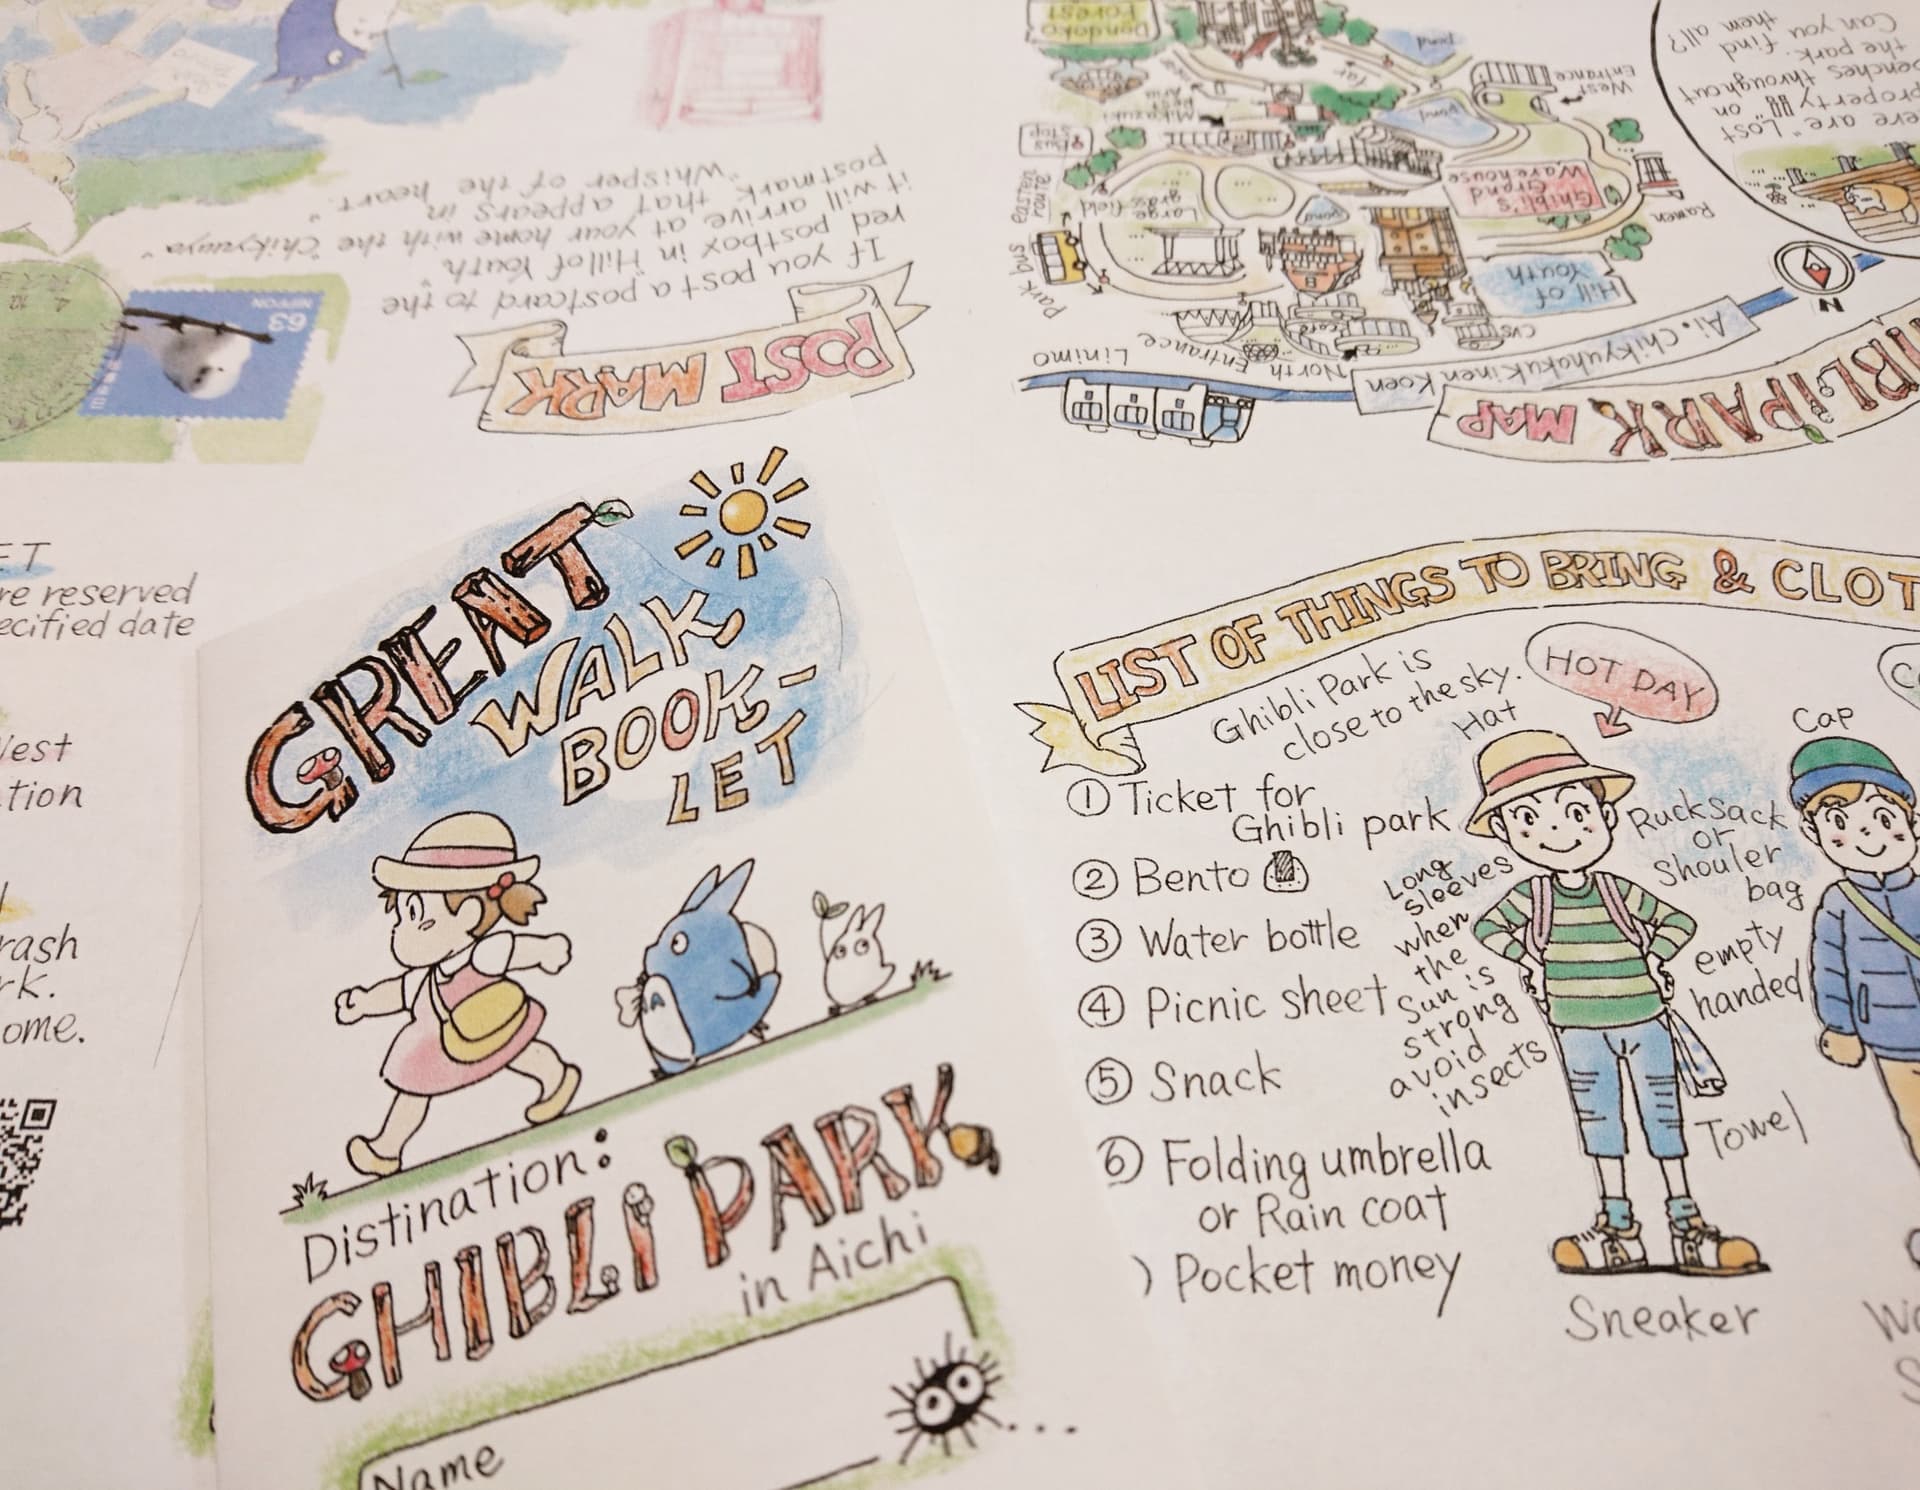 GREAT
WALK
BOOK-
LET
Distination:
GHIBLI PARK
in Aichi
Name
LIST OF THINGS TO BRING & CLOT
Ghibli Park is
close to the sky.
HOT DAY
Hat
① Ticket for
Ghibli park
② Bento
③ Water bottle
④ Picnic sheet
⑤ Snack
⑥ Folding umbrella
or Rain coat
) Pocket money
Long
sleeves
when
the
sun is
strong
avoid
insects
Rucksack
or
Shouler
bag
empty
handed
Towel
Sneaker
Cap
POST MARK
If you post a postcard to the
red postbox in "Hill of Youth"
it will arrive at your home with the "Chikyuuya"
postmark that appears in
"Whisper of the heart."
NIPPON
63
GHIBLI PARK MAP
Linimo
Ai・Chikyuhaku Kinen Koen
N
North Entrance
Hill of
Youth
Park bus
eastern
route
Large
grass field
Pond
Ghibli's
Grand
Warehouse
Ramen
Bus
Stop
West
Entrance
Pond
Pond
Dondoko
Forest
ere are "Lost
property" on
benches throughout
the park. find
Can you
them all?
ET
re reserved
ecified date
West
tion
rash
rk.
ome.